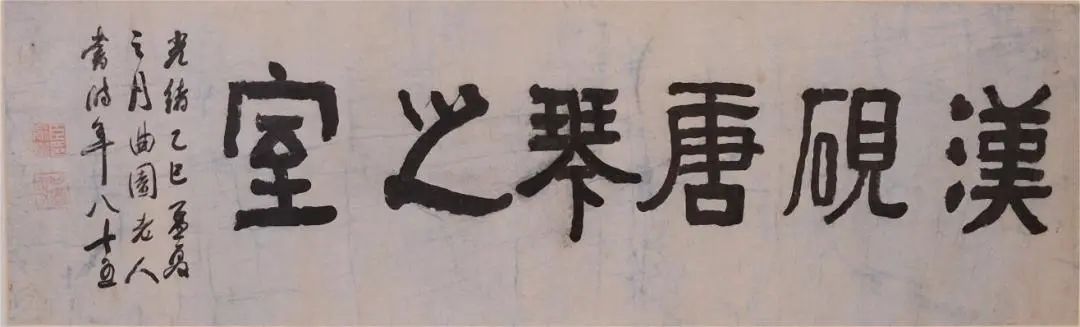 漢硯唐琴之室
光緒乙巳孟夏
之月曲園老人
書時年八十五